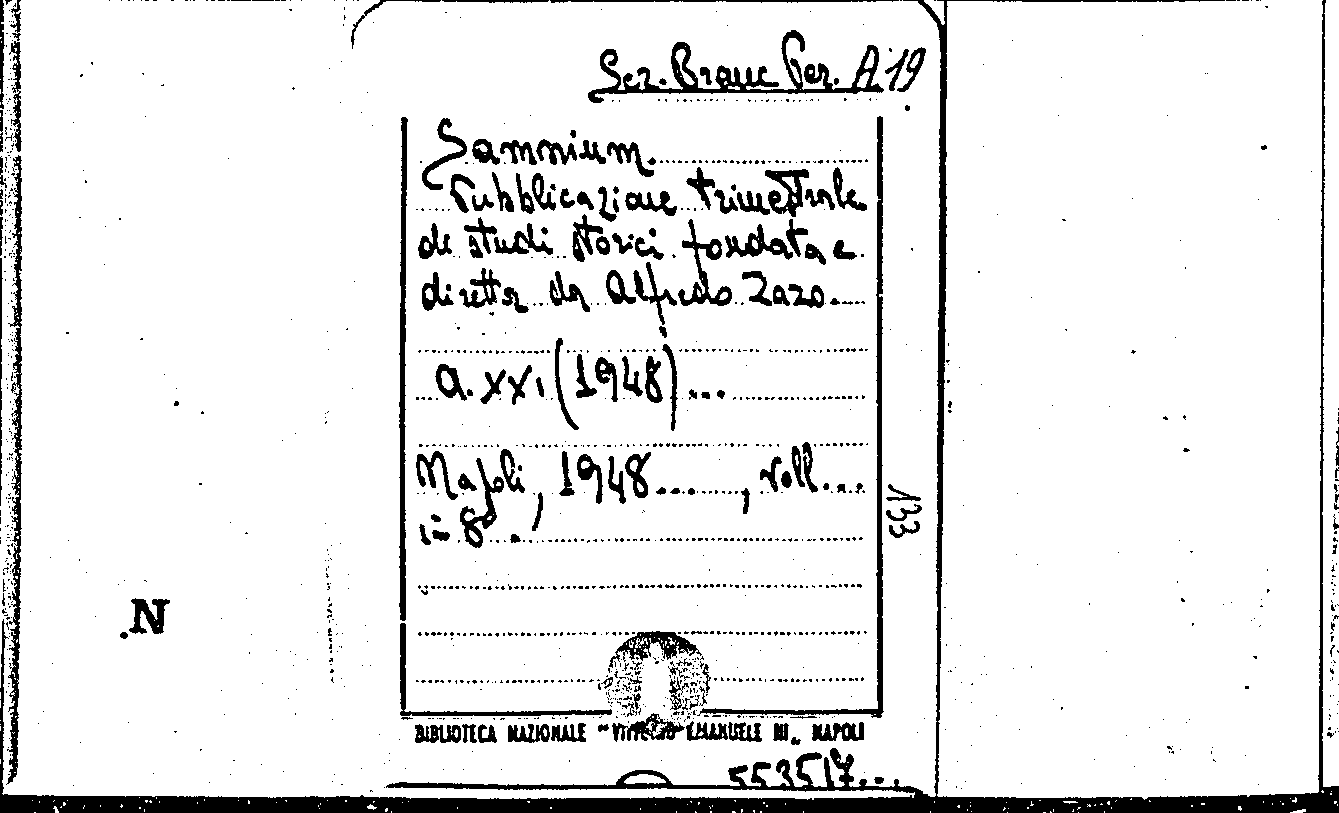 Sez. Branc Per. A 19
Samnium.
Pubblicazione trimestrale
di studi storici fondata e
diretta da Alfredo Zazo.
a. XXI (1948)...
Napoli, 1948...., voll...
in 8°.
133
N.
BIBLIOTECA NAZIONALE "VITTORIO EMANUELE III" NAPOLI
553517...